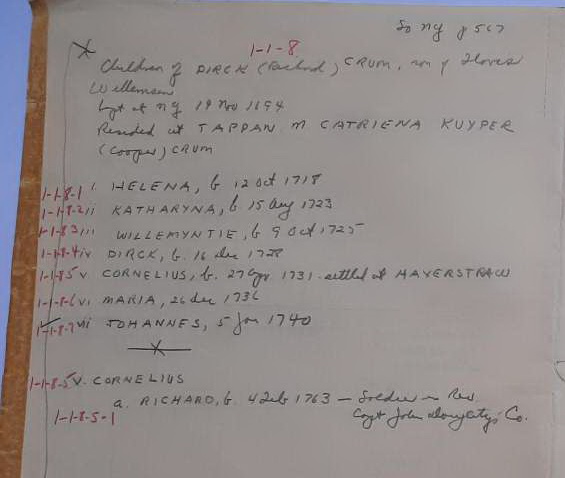 So NY p 567
1-1-8
X
Children of DIRCK (Richard) CRUM, son of Floris
Willemsen
bpt at NY 19 Nov 1694
Resided at TAPPAN m CATRIENA KUYPER
(Cooper) CRUM
1-1-8-1 i HELENA, b 12 Oct 1718
1-1-8-2 ii KATHARYNA, b 15 Aug 1723
1-1-8-3 iii WILLEMYNTIE, b 9 Oct 1725
1-1-8-4 iv DIRCK, b. 16 Dec 1728
1-1-8-5 v CORNELIUS, b. 27 Apr 1731 - settled at HAVERSTRAW
1-1-8-6 vi MARIA, 26 Dec 1736
1-1-8-7 vii JOHANNES, 5 Jan 1740
X
1-1-8-5 V. CORNELIUS
a. RICHARD, b. 4 Feb 1763 - Soldier in Rev
1-1-8-5-1 Capt John Doughty's Co.